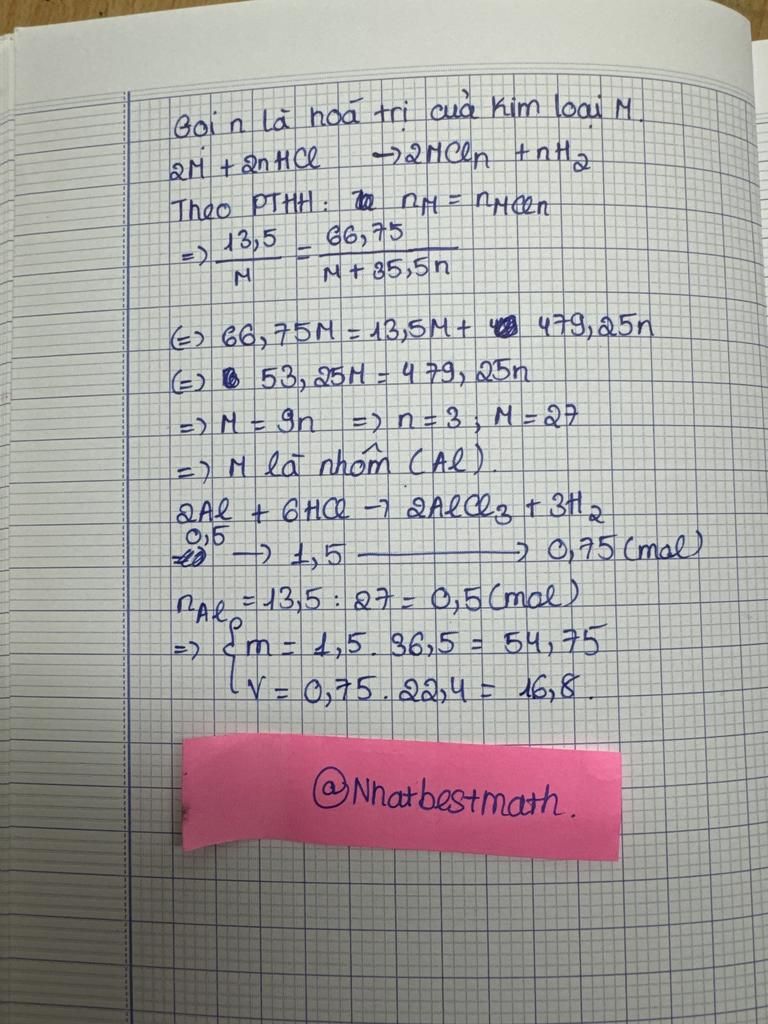 Gọi n là hoá trị cuả kim loại M.
2M + 2nHCl → 2MCln + nH2
Theo PTHH: nM = nMCln
=> 13,5/M = 66,75/(M + 35,5n)
(=) 66,75M = 13,5M + 479,25n
(=) 53,25M = 479,25n
=> M = 9n => n = 3; M = 27
=> M là nhôm (Al).
2Al + 6HCl → 2AlCl3 + 3H2
0,5 → 1,5 → 0,75 (mol)
nAl = 13,5 : 27 = 0,5 (mol)
=> { m = 1,5 . 36,5 = 54,75
V = 0,75 . 22,4 = 16,8.
@Nhatbestmath.